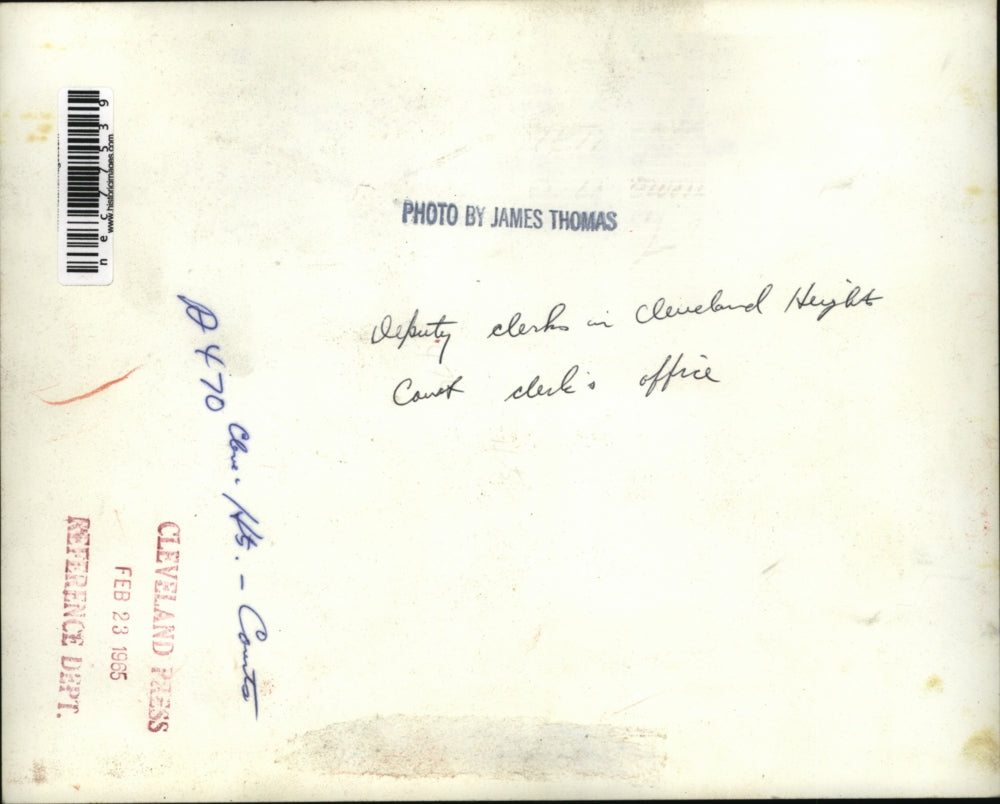 PHOTO BY JAMES THOMAS
Deputy clerks in Cleveland Height
Court clerk's office
A 470 Cleve. Hts. - Courts
CLEVELAND PRESS
FEB 23 1965
REFERENCE DEPT.
nec77539
www.historicimages.com